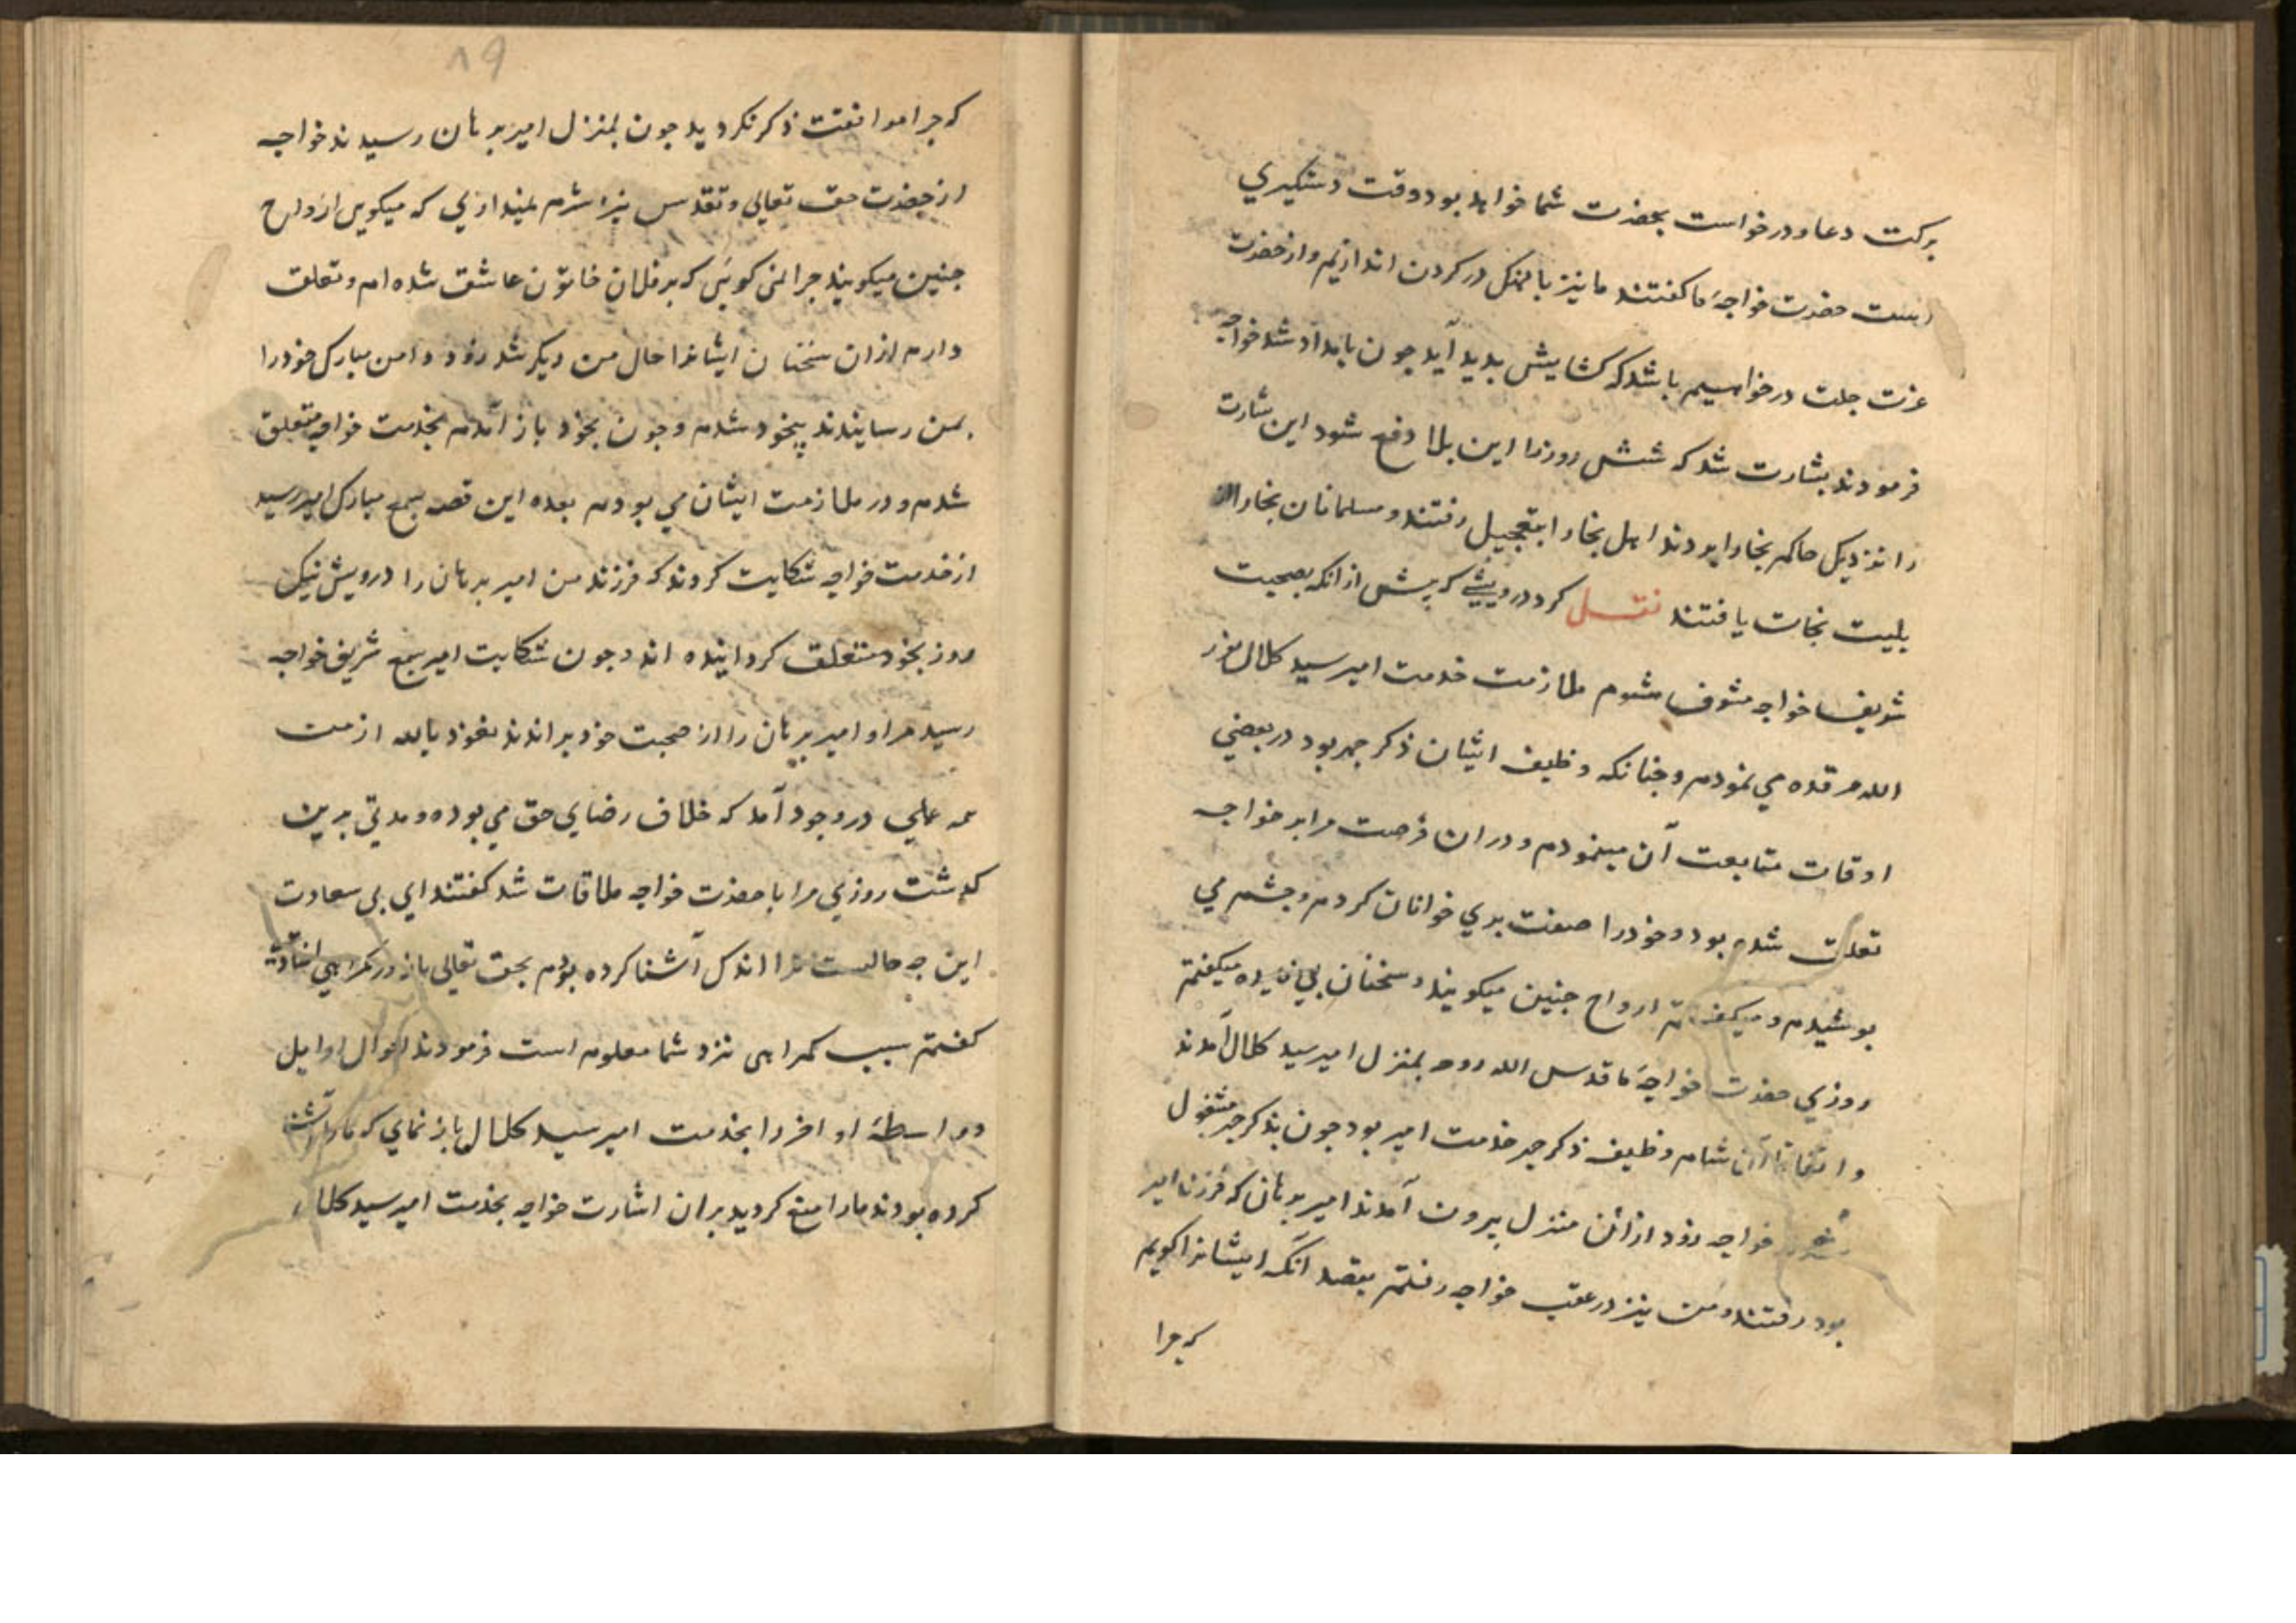 برکت دعا و درخواست بحضرت شما خواهد بود وقت دستکیری
است حضرت خواجهٔ ما کفتند ما نیز پالهنک در کردن اندازیم و از حضرت
عزت جلت درخواهیم باشد که کشایش بدید آید جون بامداد شد خواجه
فرمودند بشارت شد که شش روز را این بلا دفع شود این بشارت
را نزدیک حاکم بخارا بردند اهل بخارا بتعجیل رفتند و مسلمانان بخارا از
بلیت نجات یافتند نقل کرد درویشی که پیش از انکه بصحبت
شریف خواجه مشرف شوم ملازمت خدمت امیر سید کلال نور
الله مرقده می نمودم و جنانکه وظیفه ایشان ذکر جهر بود در بعضی
اوقات متابعت آن مینمودم و در ان فرصت مرا بر خواجه
تعلق شده بود و خود را صفت بری خوانان کردم و جشم می
بوشیدم و میکفتم ارواح جنین میکویند و سخنان بی فایده میکفتم
روزی حضرت خواجهٔ ما قدس الله روحه بمنزل امیر سید کلال آمدند
و اتفاقا آن شام وظیفه ذکر جهر خدمت امیر بود جون بذکر جهر مشغول
خواجه زود از آن منزل بیرون آمدند امیر برهان که فرزند امیر
بود رفتند و من نیز در عقب خواجه رفتم بقصد آنکه ایشانرا کویم
که جرا
۱۹
که جرا موافقت ذکر نکردید جون بمنزل امیر برهان رسیدند خواجه
از حضرت حق تعالی و تقدس نیز شرم نمیداری که میکویی ارواح
جنین میکویند جرا نمی کویی که بر فلان خاتون عاشق شده ام و تعلق
دارم از ان سخنان ایشانرا حال من دیکر شد زود دامن مبارک خود را
بمن رسانیدند بیخود شدم و جون بخود باز آمدم بخدمت خواجه متعلق
شدم و در ملازمت ایشان می بودم بعده این قصه بسمع مبارک امیر رسید
از خدمت خواجه شکایت کردند که فرزند من امیر برهان را درویش نیک
روز بخود متعلق کردانیده اند و جون شکایت امیر بسمع شریف خواجه
رسید مرا و امیر برهان را از صحبت خود براندند نعوذ بالله از من
همه عملی در وجود آمد که خلاف رضای حق می بوده و مدتی برین
کذشت روزی مرا با حضرت خواجه ملاقات شد کفتند ای بی سعادت
این جه حالیست ترا اندک آشنا کرده بودم بحق تعالی باز در کمراهی افتادهٔ
کفتم سبب کمراهی نزد شما معلوم است فرمودند احوال اوایل
و واسطه و اواخر را بخدمت امیر سید کلال باز نمای که ما را آشنا
کرده بودند ما را منع کردید بران اشارت خواجه بخدمت امیر سید کلال